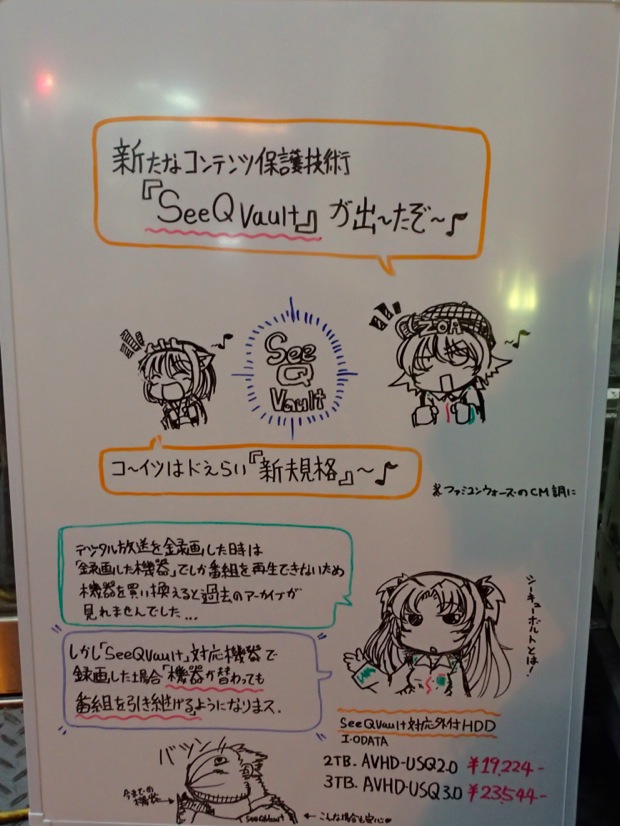 新たなコンテンツ保護技術
『SeeQVault』が出〜たぞ〜♪
ZOA
See
Q
Vault
コ〜イツはドえらい『新規格』〜♪
※ファミコンウォーズのCM調に
デジタル放送を録画した時は
「録画した機器」でしか番組を再生できないため
機器を買い換えると過去のアーカイブが
見れませんでした...
シーキューボルトとは!
しかし「SeeQVault」対応機器で
録画した場合「機器が替わっても
番組を引き継げる」ようになりまス.
SeeQVault対応外付HDD
I・ODATA
2TB. AVHD-USQ2.0 ¥19,224-
3TB. AVHD-USQ3.0 ¥23,544-
バツン
今までの
機器→
SeeQVault
←こんな場合も安心